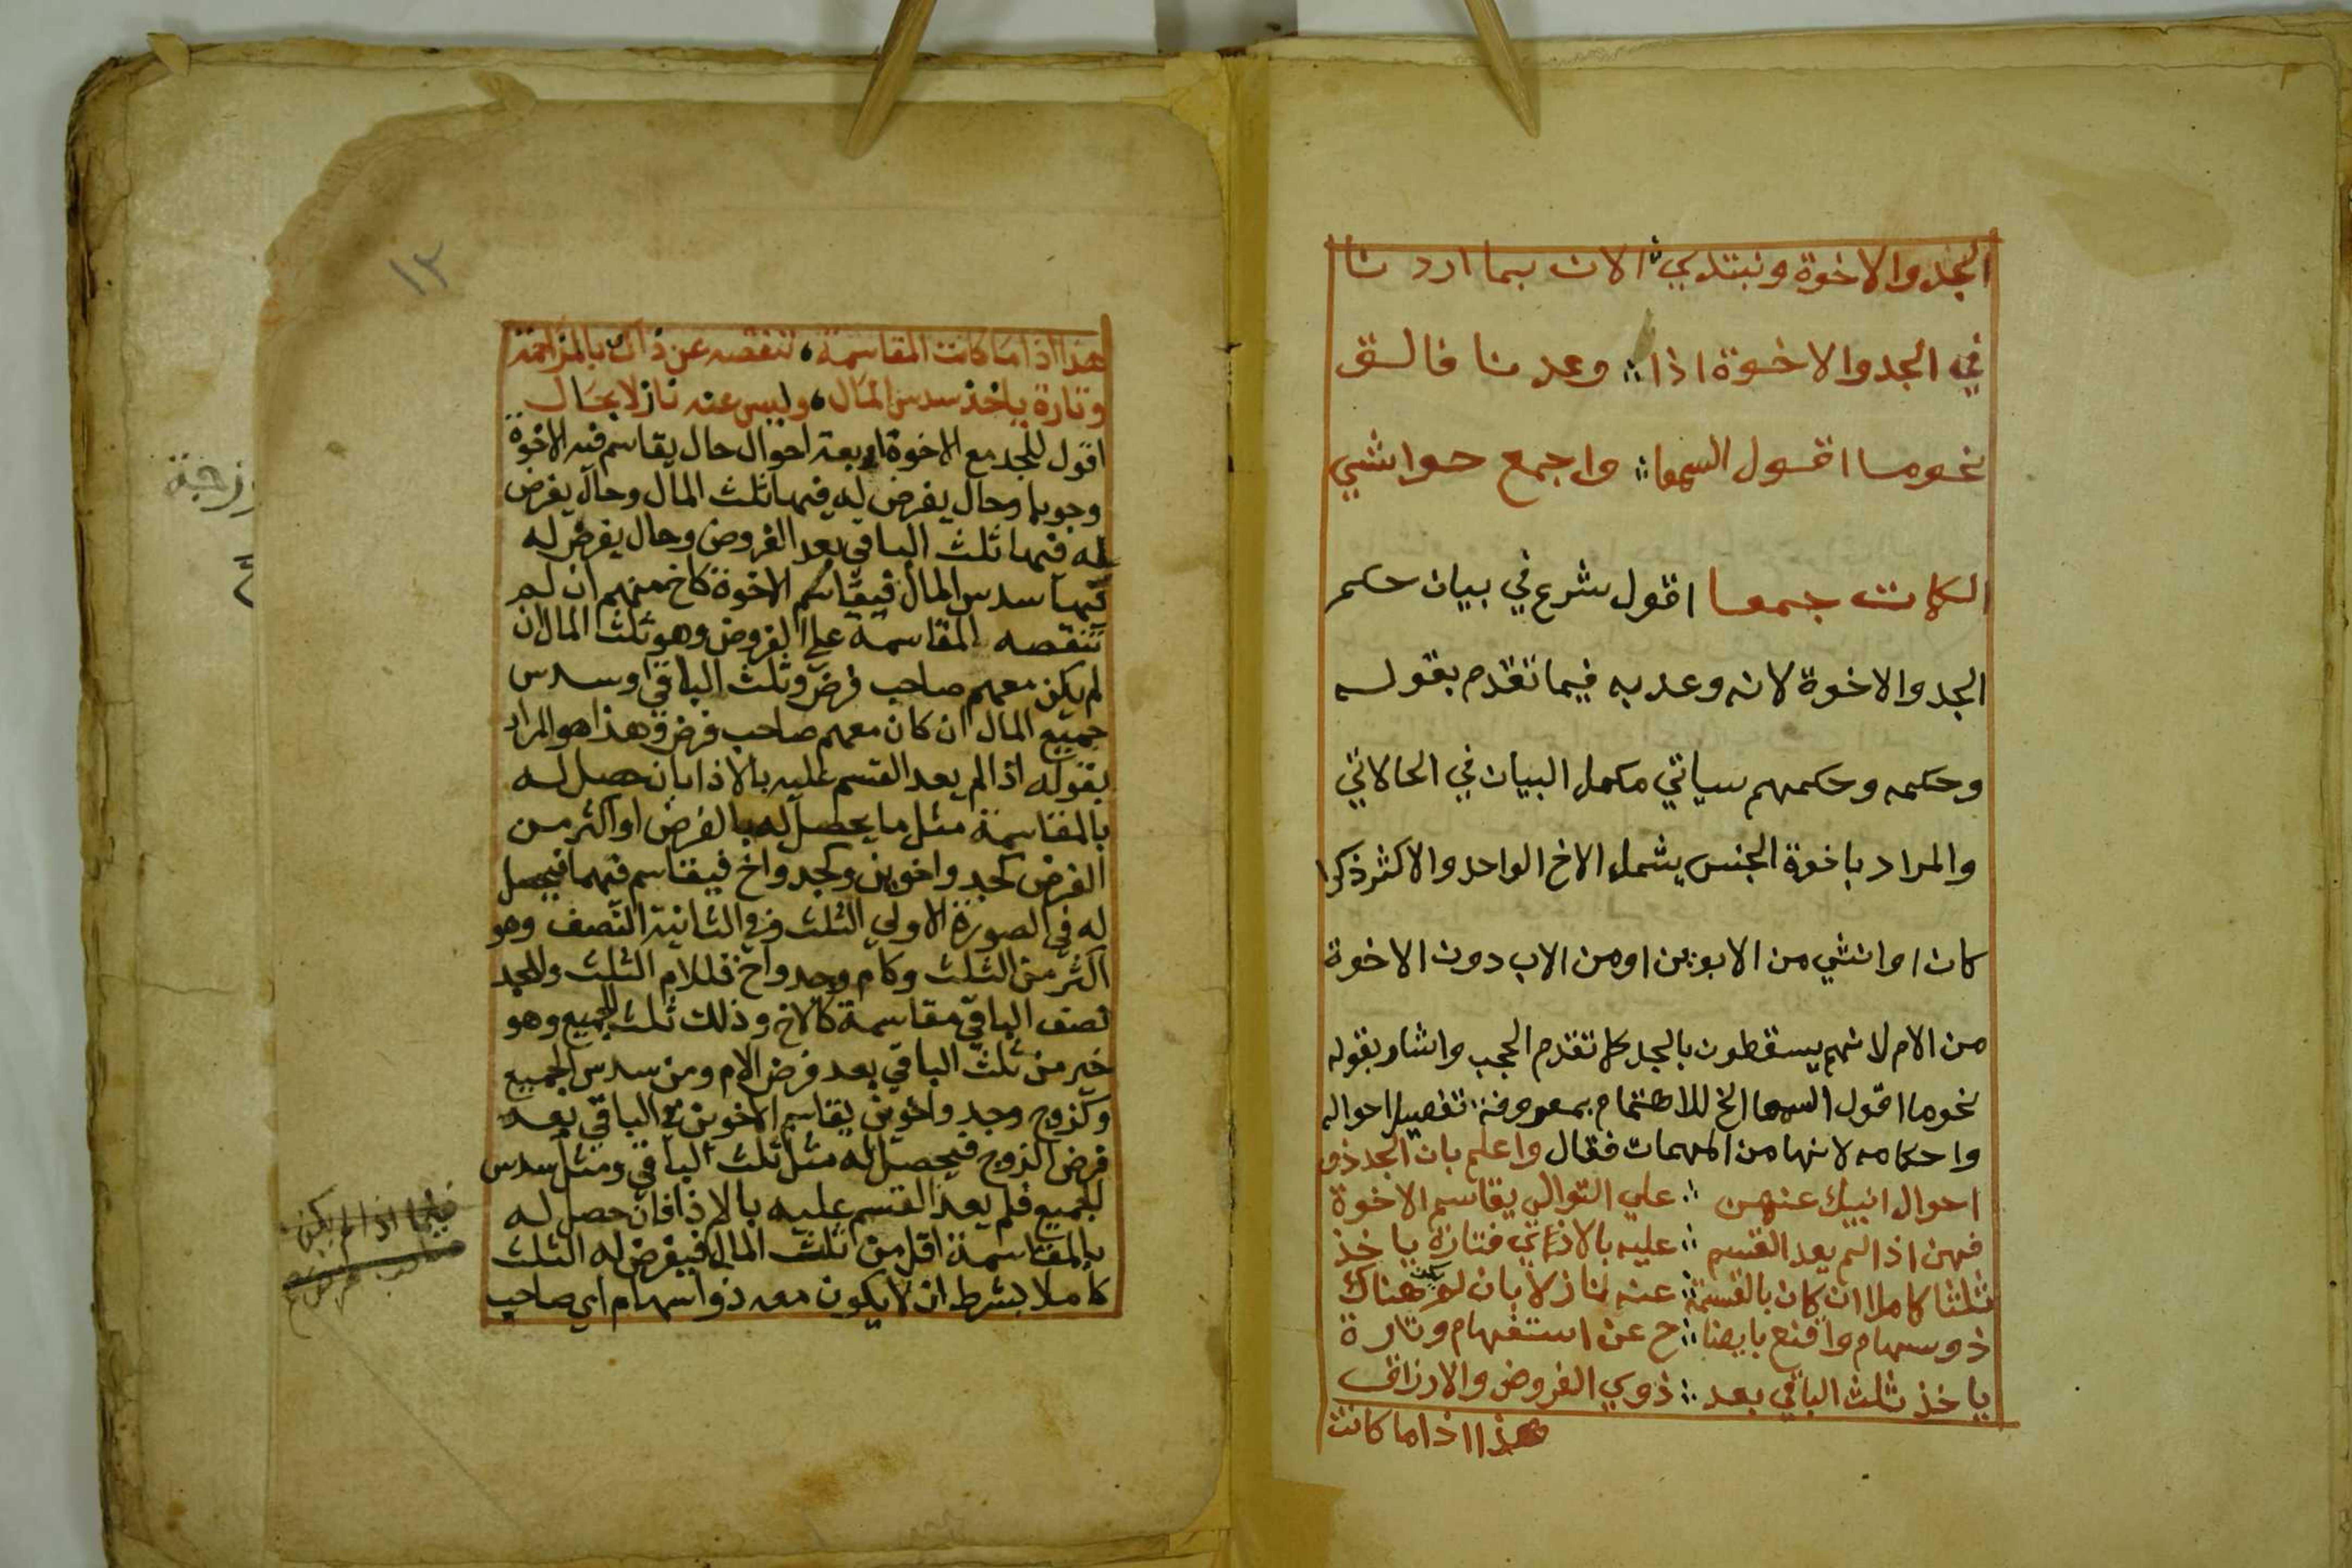 الجد والاخوة ونبتدي الان بما اردنا
في الجد والاخوة اذا وعدنا فالق
نحوما اقول السمعا واجمع حواشي
الكلمات جمعا اقول شرع في بيان حكم
الجد والاخوة لانه وعد به فيما تقدم بقوله
وحكمه وحكمهم سياتي مكمل البيان في الحالاتي
والمراد باخوة الجنس يشمل الاخ الواحد والاكثر ذكرا
كان او انثي من الابوين او من الاب دون الاخوة
من الام لانهم يسقطون بالجد كما تقدم الحجب واشار بقوله
نحوما اقول السمعا الخ للاهتمام بمعرفة تفصيل احواله
واحكامه لانها من المهمات فقال واعلم بان الجد ذو
احوال انبيك عنهن علي التوالي يقاسم الاخوة
فهن اذا لم يعد القسم عليه بالاذاتي فتارة ياخذ
ثلثا كاملا ان كان بالقسمة عنه نازلا بان لم يكن هناك
ذو سهام واقنع بايضا ح عن استفهام وتارة
ياخذ ثلث الباقي بعد ذوي الفروض والارزاق
هذا اذا ما كانت
١٣
هذا اذا ما كانت المقاسمة تنقصه عن ذاك بالمزاحمة
وتارة ياخذ سدس المال وليس عنه نازلا بحال
اقول للجد مع الاخوة اربعة احوال حال يقاسم فيه الاخوة
وجوبا وحال يفرض له فيها ثلث المال وحال يفرض
له فيها ثلث الباقي بعد الفروض وحال يفرض له
فيها سدس المال فيقاسم الاخوة كاخ منهم ان لم
تنقصه المقاسمة علي الفروض وهو ثلث المال ان
لم يكن معهم صاحب فرض وثلث الباقي او سدس
جميع المال ان كان معهم صاحب فرض وهذا هو المراد
بقوله اذا لم يعد القسم عليه بالاذا بان حصل له
بالمقاسمة مثل ما يحصل له بالفرض او اكثر من
الفرض كجد واخوين وكجد واخ فيقاسم فيهما فيحصل
له في الصورة الاولي الثلث وفي الثانية النصف وهو
اكثر من الثلث وكام وجد واخ فللام الثلث وللجد
نصف الباقي مقاسمة كالاخ وذلك ثلث الجميع وهو
خير من ثلث الباقي بعد فرض الام ومن سدس الجميع
وكزوج وجد واخوين يقاسم الاخوين في الباقي بعد
فرض الزوج فيحصل له مثل ثلث الباقي ومثل سدس
الجميع فلم يعد القسم عليه بالاذا فان حصل له
بالمقاسمة اقل من ثلث المال فيفرض له الثلث
كاملا بشرط ان لا يكون معه ذو اسهام اي صاحب
فيما اذا لم يكن
صاحب فرض
زوجة